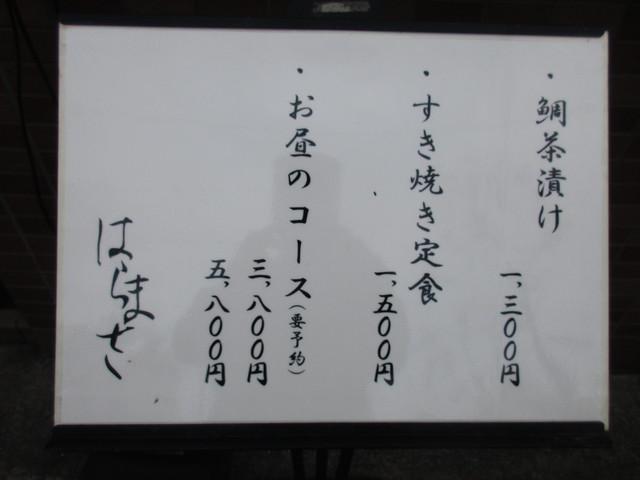 ・鯛茶漬け
一、三〇〇円
・すき焼き定食
一、五〇〇円
・お昼のコース(要予約)
三、八〇〇円
五、八〇〇円
はらまさ